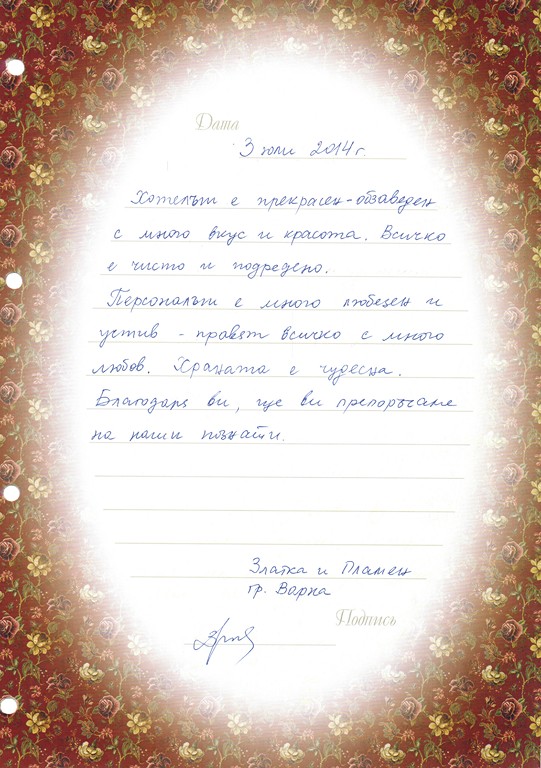 Дата
3 юли 2014 г.
Хотелът е прекрасен - обзаведен
с много вкус и красота. Всичко
е чисто и подредено.
Персоналът е много любезен и
устив - правят всичко с много
любов. Храната е чудесна.
Благодаря ви, ще ви препоръчаме
на наши познати.
Златка и Пламен
гр. Варна
Подпись